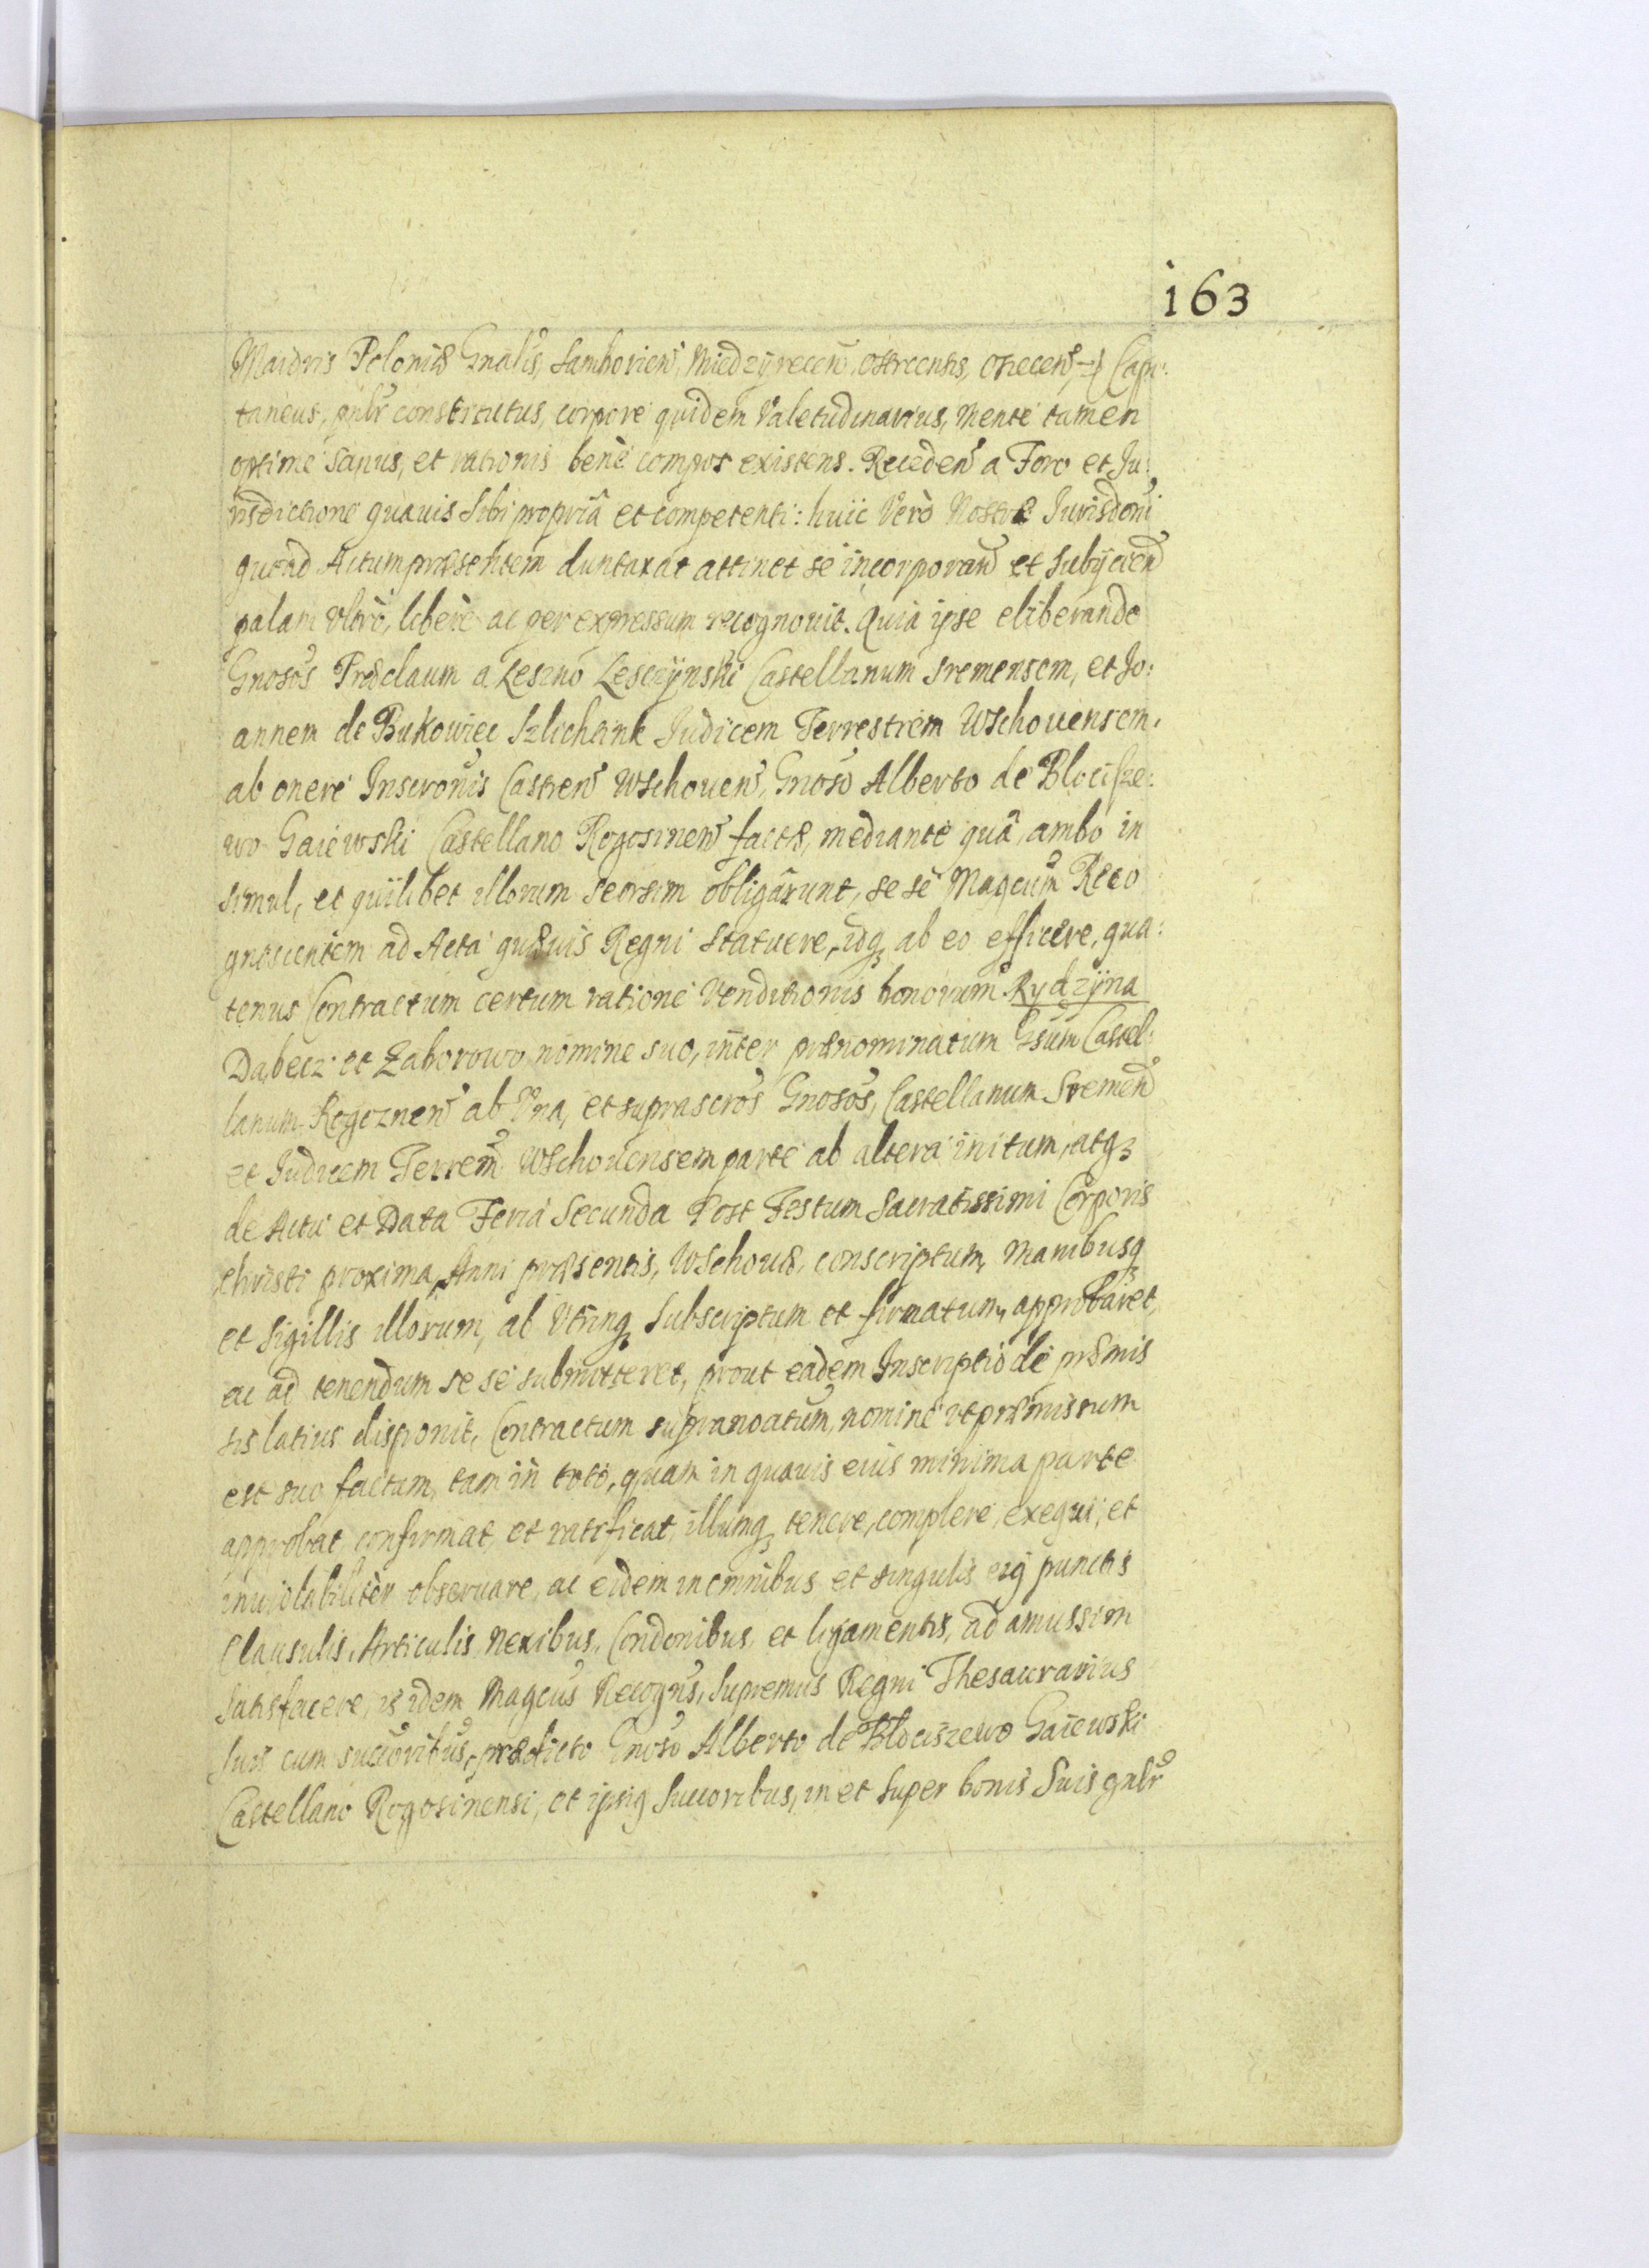 163
Maioris Poloniæ Gnalis, Samborien̄, Miedzyrecen̄, Ostrcensis, Osiecen̄, Capi:
taneus, pnlr constitutus, corpore quidem Valetudinarius, Mente tamen
optime sanus, et rationis benè compos existens. Receden̄ a Foro et Ju:
risdictione quavis sibi propriâ et competenti: huic Verò Nostræ Jurisdoni
quoad Actum præsentem duntaxat attinet se incorporan̄ et subijcien̄
palam Vltrò, liberè ac per expressum recognovit. Quia ipse eliberando
Gnosos Prædclaum a Leszno Lesczÿnski Castellanum Sremensem, et Jo:
annem de Bukowiec Szlichtink Judicem Terrestrem Wschovensem,
ab onere Inscronis Castren̄ Wschoven̄, Gnoso Alberto de Blocisze:
wo Gaiewski Castellano Rogosinen̄ factæ, mediante quâ, ambo in
simul, et quilibet illorum seorsim obligârunt, se se Magcum Reco
gnoscentem ad Acta quævis Regni statuere, idq; ab eo efficere, qua:
tenus Contractum certum ratione Venditionis bonorum Rydzÿna
Dabecz et Zaborowo nomine suo, inter prænominatum Gsum Castel:
lanum Rogoznen̄ ab Vna, et suprascros Gnosos, Castellanum Sremen̄
et Judicem Terrem̄ Wschovensem parte ab altera initum, atq;
de Actu et Data Feria Secunda Post Festum Sacratissimi Corporis
Christi proxima, Anni præsentis, Wschovæ, conscriptum, Manibusq;
et Sigillis illorum, ab Vtrinq; Subscriptum et firmatum, approbaret,
ac ad tenendum se se submitteret, prout eadem Inscriptio de præmis
sis latius disponit, Contractum supranoatum, nomine vt præmissum
est suo factum, tam in toto, quam in quavis eius minima parte
approbat, confirmat, et ratificat, illumq; tenere, complere, exequi, et
inviolabiliter observare, ac eidem in omnibus et singulis eig punctis
Clausulis, Articulis, Nexibus, Condonibus, et ligamentis, ad amussim
satisfacere, is idem Magcus Recogns, Supremus Regni Thesaurarius
suis cum succoribus, prædicto Gnoso Alberto de Blociszewo Gaiewski
Castellano Rogosinensi, et ipsig Succoribus, in et super bonis Suis gnlr